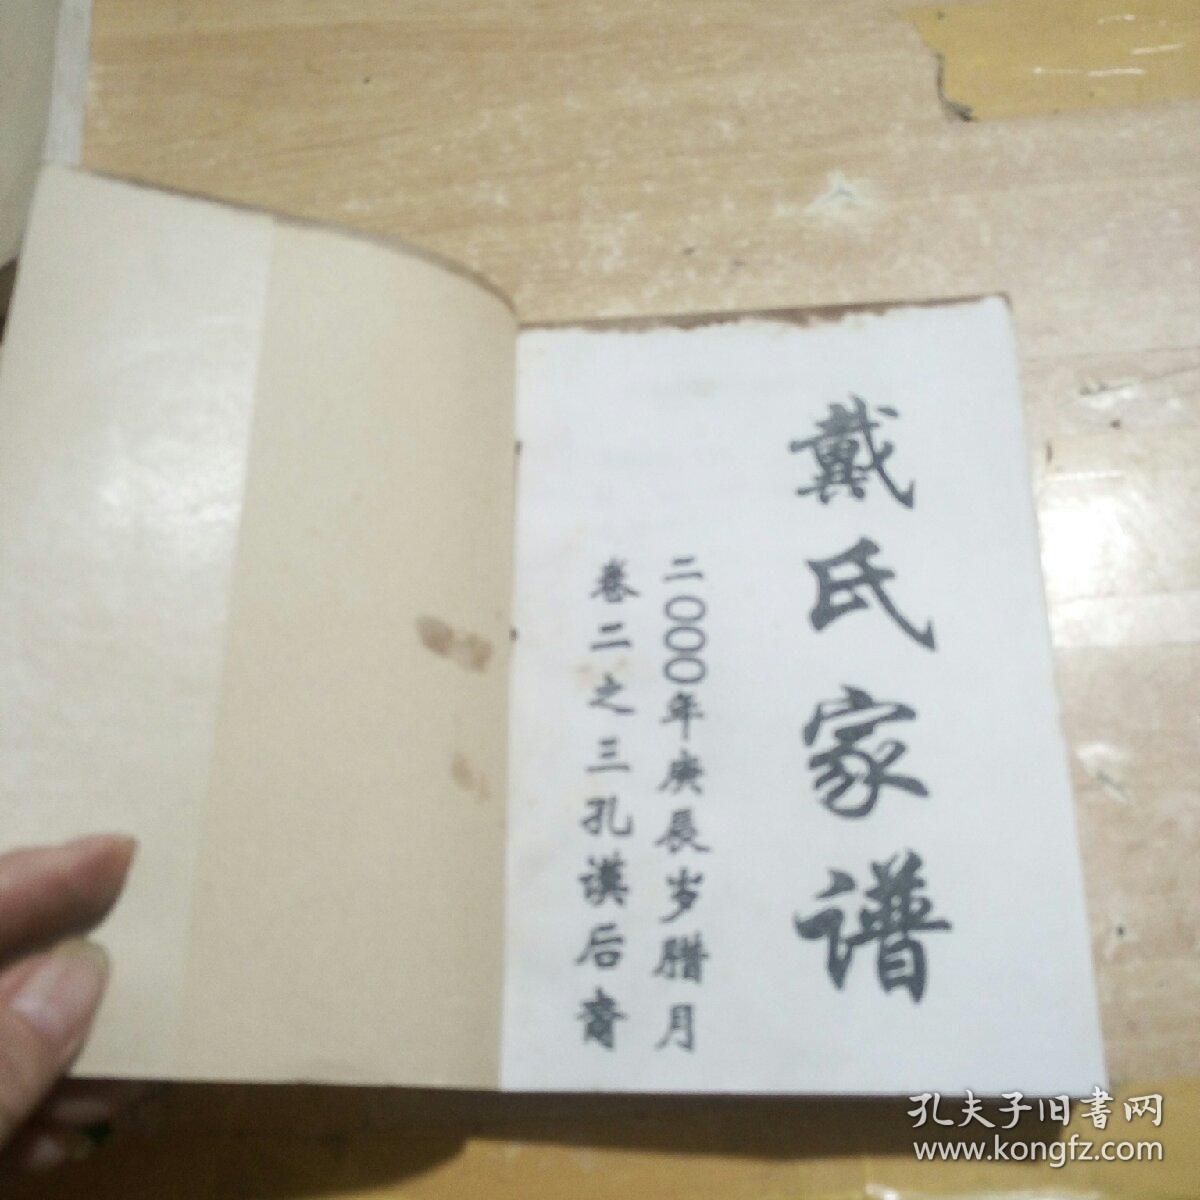 戴氏家谱
二000年庚辰岁腊月
卷二之三孔谟后裔
孔夫子旧书网
www.kongfz.com